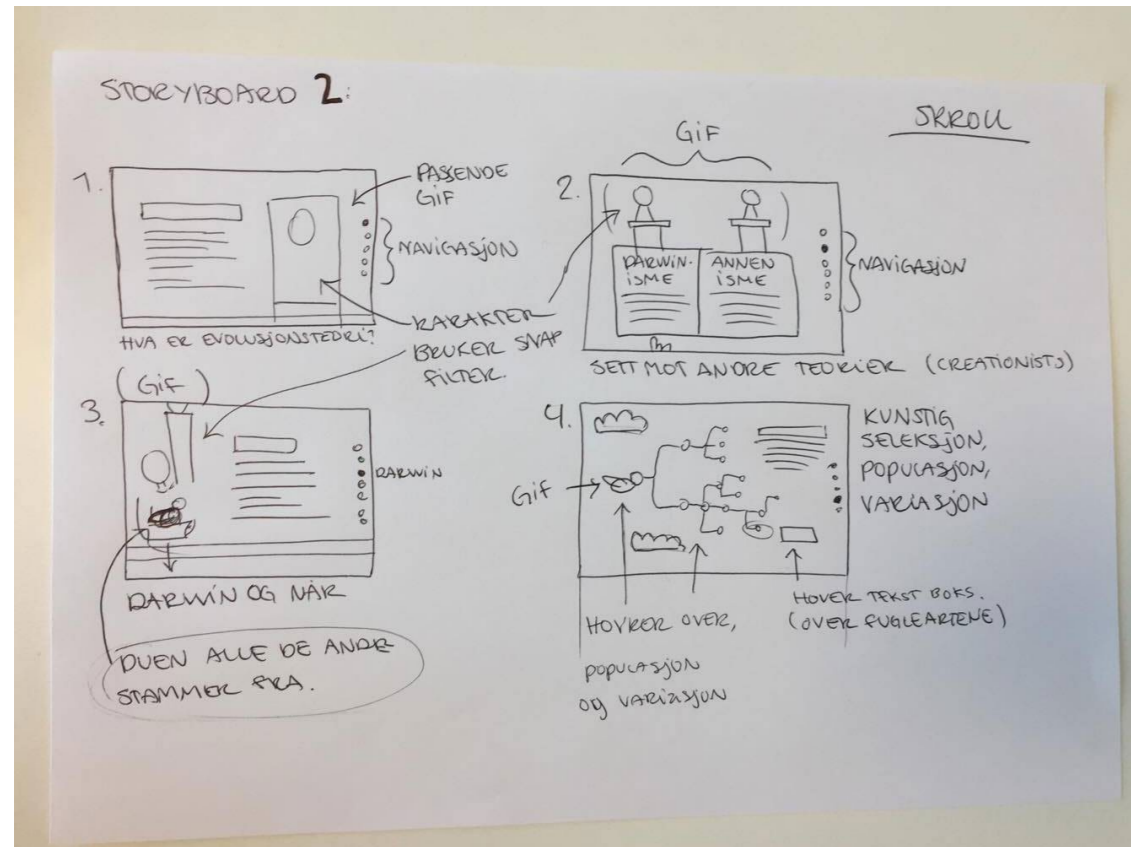 STORYBOARD 2:
SKROLL
1.
PASSENDE
GIF
NAVIGASJON
HVA ER EVOLUSJONSTEORI?
KARAKTER
BRUKER SNAP
FILTER.
GIF
2.
DARWIN-
ISME
ANNEN
ISME
NAVIGASJON
SETT MOT ANDRE TEORIER (CREATIONISTS)
(GIF)
3.
DARWIN
DARWIN OG NÅR
DUEN ALLE DE ANDRE
STAMMER FRA.
4.
GIF
KUNSTIG
SELEKSJON,
POPULASJON,
VARIASJON
HOVRER OVER,
POPULASJON
OG VARIASJON
HOVER TEKST BOKS.
(OVER FUGLEARTENE)